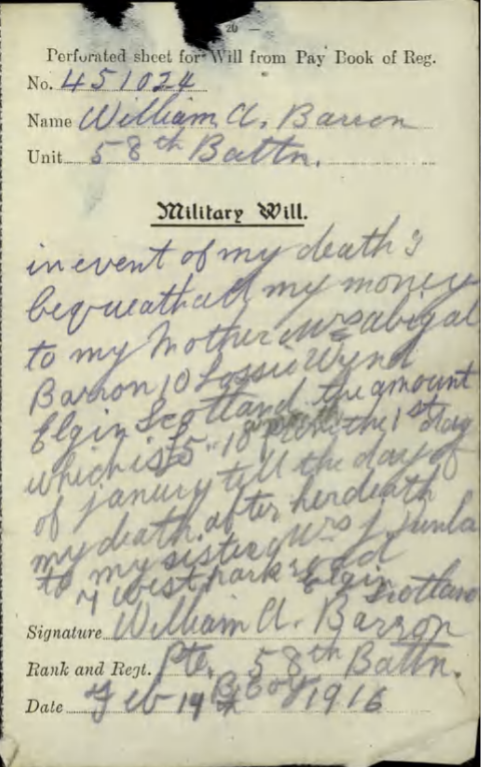 20 —
Perforated sheet for Will from Pay Book of Reg.
No. 451024
Name William A. Barron
Unit 58th Battn.
Military Will.
in event of my death I
bequeath all my money
to my Mother Mrs abigal
Barron 10 Lossie Wynd
Elgin Scotland the amount
which is $5" 18 the 1st day
of january till the day of
my death. after her death
to my sister Mrs J.
7 west park road Elgin
Scotland
Signature William A. Barron
Rank and Regt. Pte. 58th Battn.
Date Feb 14 B Coy 1916